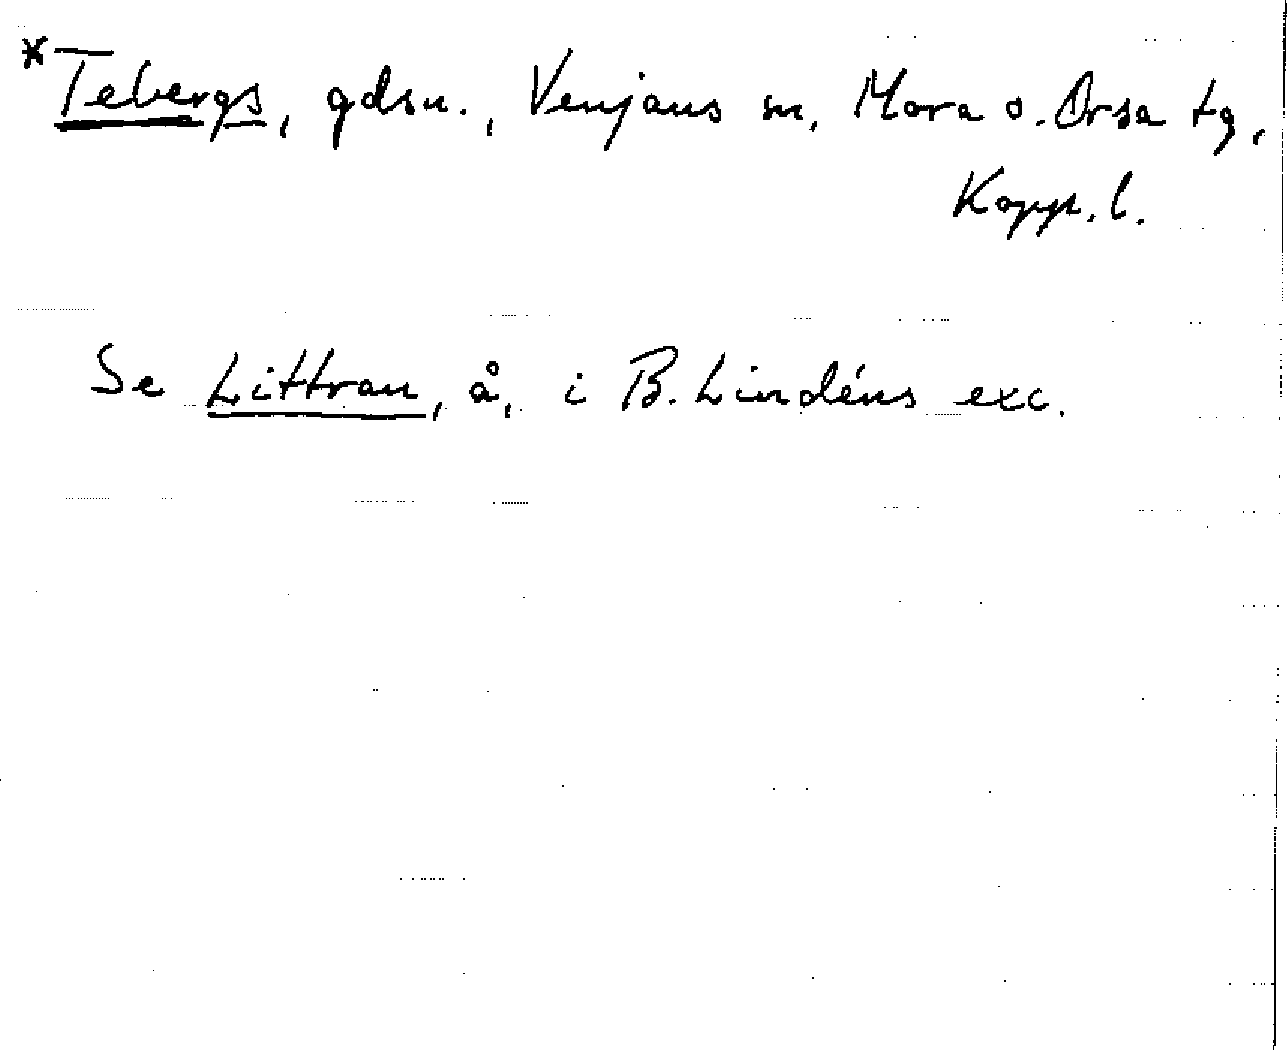 *Tebergs, gdsn., Venjans sn, Mora o. Orsa tg,
Kopp. l.
Se Littran, å, i B. Lindéns exc.